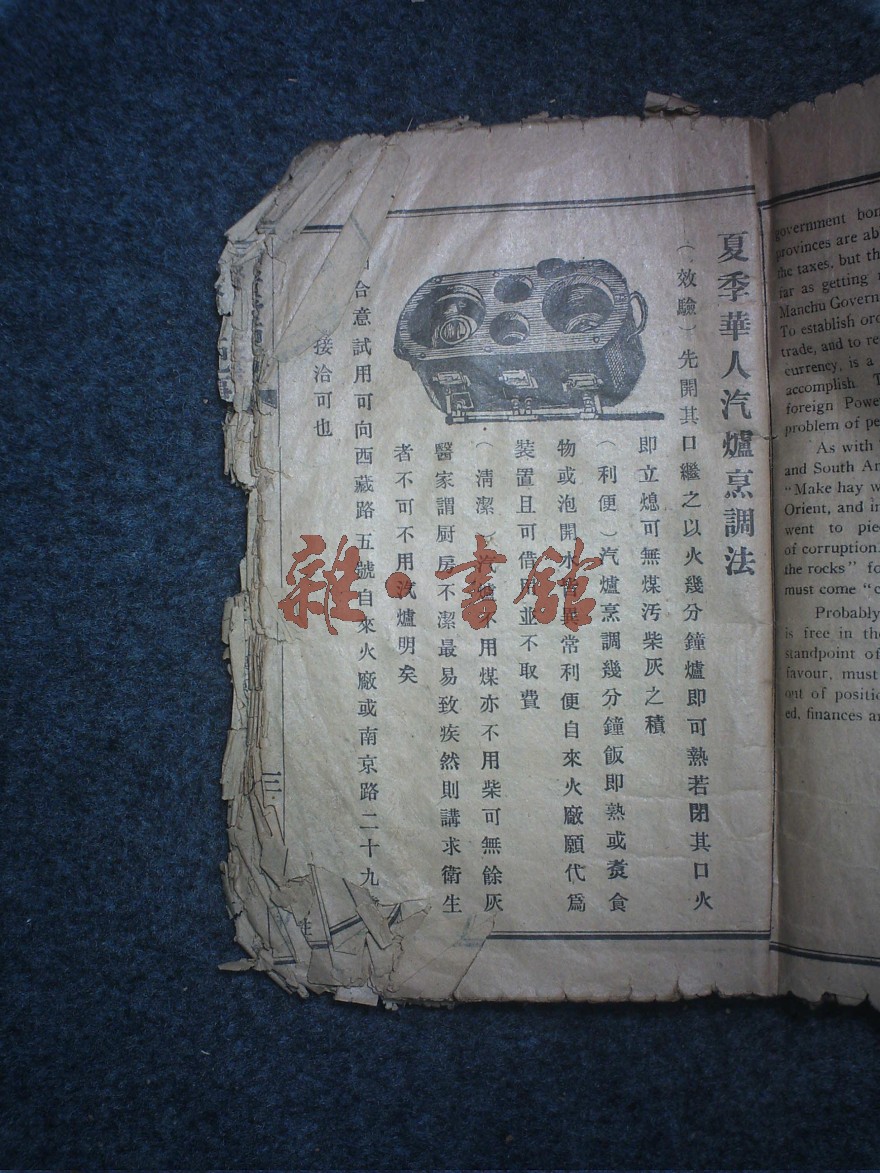 夏季華人汽爐烹調法
（效驗）先開其口繼之以火幾分鐘爐即可熱若閉其口火
即立熄可無煤污柴灰之積
（利便）汽爐烹調幾分鐘飯即熟或煑食
物或泡開水皆異常利便自來火廠願代爲
裝置且可借用並不取費
（清潔）汽爐不用煤亦不用柴可無餘灰
醫家謂厨房不潔最易致疾然則講求衛生
者不可不用汽爐明矣
合意試用可向西藏路五號自來火廠或南京路二十九
接洽可也
三
雜·書館
government bon
provinces are ab
the taxes, but th
far as getting
Manchu Govern
To establish ord
trade, and to re
currency, is a
accomplish. T
foreign Powe
problem of pe
As with
and South Am
"Make hay w
Orient, and in
went to pie
of corruption.
the rocks" fo
must come "c
Probably
is free in the
standpoint of
favour, must
out of positio
ed, finances an